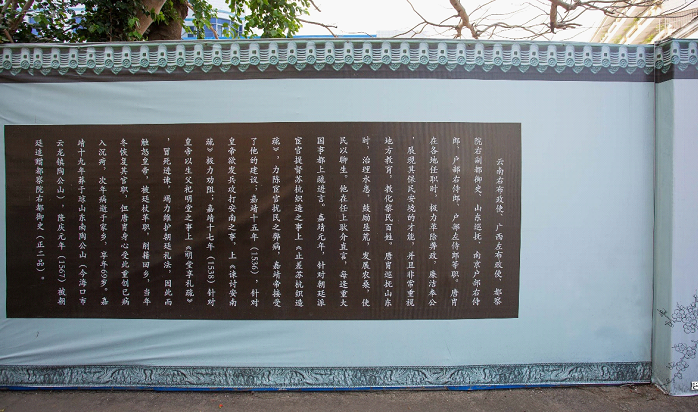 云南右布政使、广西左布政使、都察
院右副都御史、山东巡抚、南京户部右侍
郎、户部右侍郎、户部左侍郎等职。唐胄
在各地任职时，极力革除弊政，廉洁奉公
，展现其保民安境的才能，并且非常重视
地方教育，教化黎民百姓。唐胄巡抚山东
时，治理水患，鼓励垦荒，发展农桑，使
民以聊生。他在任上耿介直言，每逢重大
国事都上疏进言。嘉靖元年，针对朝廷派
宦官提督苏杭织造之事上《止差苏杭织造
疏》，力陈宦官扰民之弊病，嘉靖帝接受
了他的建议；嘉靖十五年（1536），针对
皇帝欲发兵攻打安南之事，上《谏讨安南
疏》极力劝阻；嘉靖十七年（1538）针对
皇帝以生父祀明堂之事上《明堂享礼疏》
，冒死进谏，竭力维护朝廷礼法，因此而
触怒皇帝，被廷杖革职，削籍回乡，当年
冬恢复其官职，但唐胄身心受此重创已病
入沉疴，次年病逝于家乡，享年69岁。嘉
靖十九年葬于琼山东南陶公山（今海口市
云龙镇陶公山）。隆庆元年（1567）被朝
廷追赠都察院右都御史（正二品）。